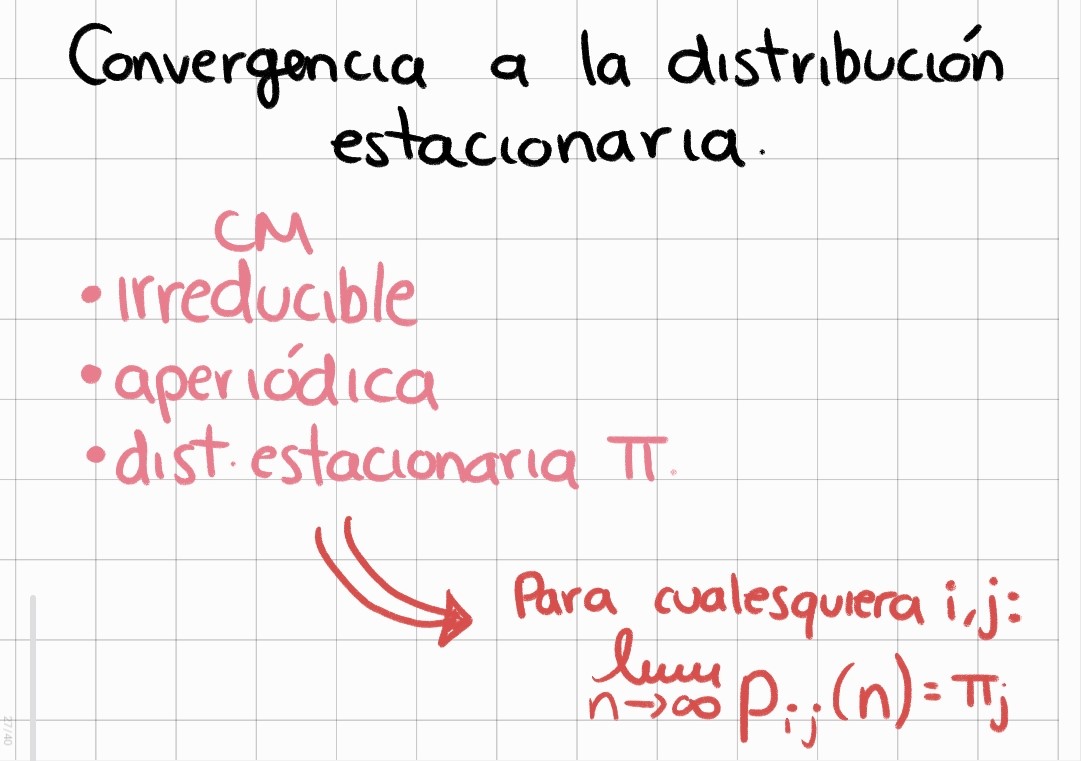 Convergencia a la distribución
estacionaria.
CM
• irreducible
• aperiódica
• dist. estacionaria π.
Para cualesquiera i,j:
lim p_ij(n) = π_j
n→∞
27/40